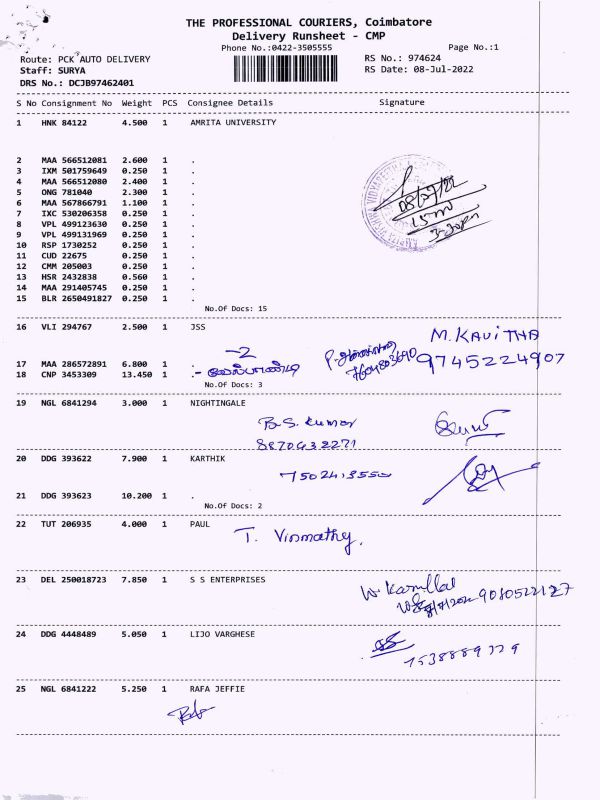 THE PROFESSIONAL COURIERS, Coimbatore
Delivery Runsheet - CMP
Phone No.:0422-3505555
Page No.:1
Route: PCK AUTO DELIVERY
RS No.: 974624
Staff: SURYA
RS Date: 08-Jul-2022
DRS No.: DCJB97462401
S No Consignment No Weight PCS Consignee Details Signature
1 HNK 84122 4.500 1 AMRITA UNIVERSITY
2 MAA 566512081 2.600 1 .
3 IXM 501759649 0.250 1 .
4 MAA 566512080 2.400 1 .
5 ONG 781040 2.300 1 .
6 MAA 567866791 1.100 1 .
7 IXC 530206358 0.250 1 .
8 VPL 499123630 0.250 1 .
9 VPL 499131969 0.250 1 .
10 RSP 1730252 0.250 1 .
11 CUD 22675 0.250 1 .
12 CMM 205003 0.250 1 .
13 HSR 2432838 0.560 1 .
14 MAA 291405745 0.250 1 .
15 BLR 2650491827 0.250 1 .
08/07/22
No.Of Docs: 15
16 VLI 294767 2.500 1 JSS
M. KAVITHA
-2
9745224907
17 MAA 286572891 6.800 1 .
18 CNP 3453309 13.450 1 .
No.Of Docs: 3
19 NGL 6841294 3.000 1 NIGHTINGALE
B.S. Kumar
8870432271
20 DDG 393622 7.900 1 KARTHIK
21 DDG 393623 10.200 1 .
No.Of Docs: 2
22 TUT 206935 4.000 1 PAUL
T. Vinmathy.
23 DEL 250018723 7.850 1 S S ENTERPRISES
9080522127
24 DDG 4448489 5.050 1 LIJO VARGHESE
25 NGL 6841222 5.250 1 RAFA JEFFIE